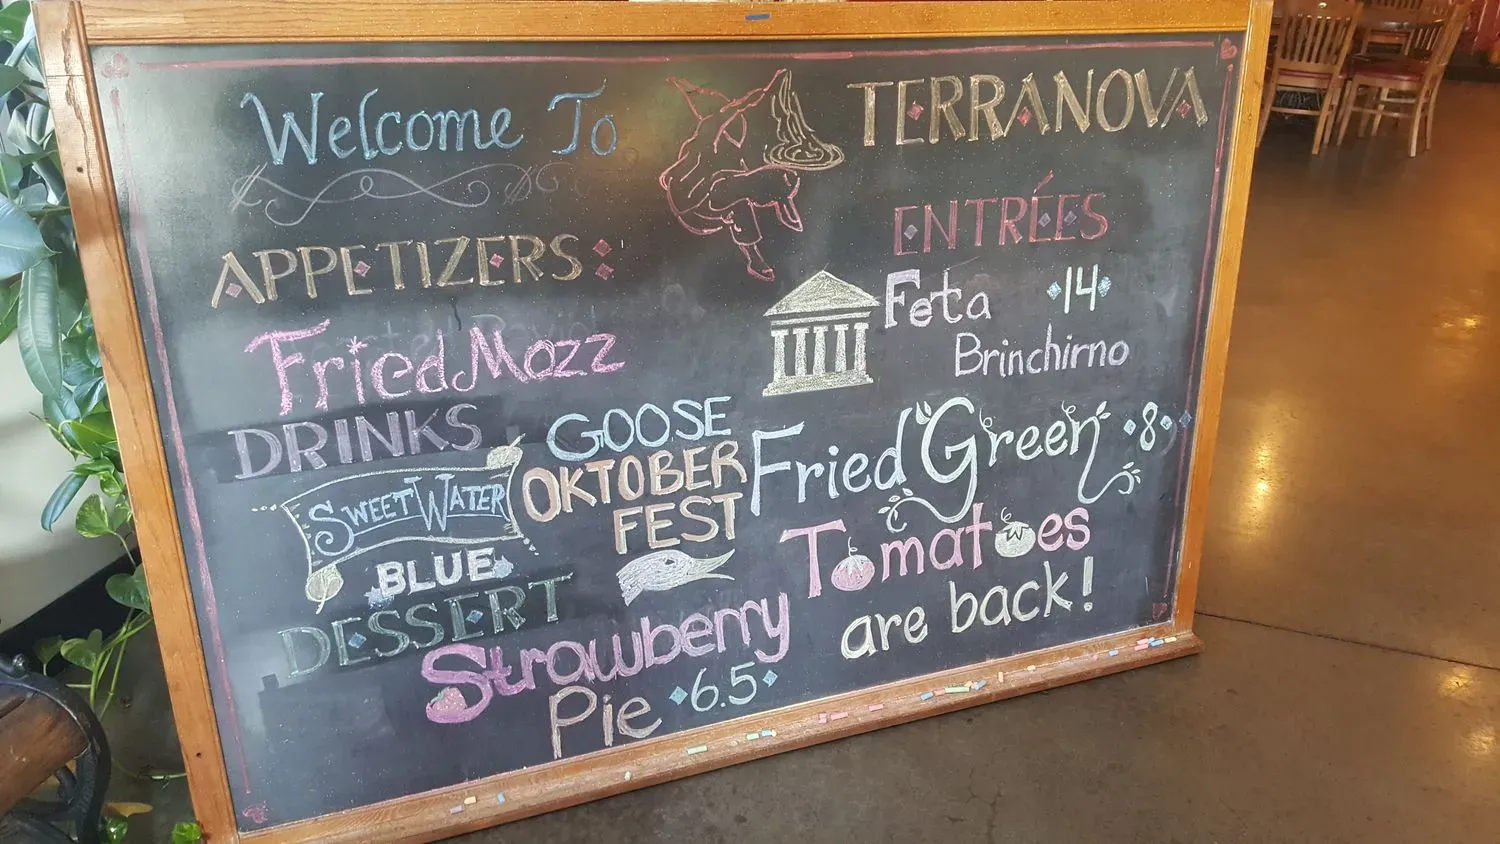 Welcome To
TERRANOVA
APPETIZERS:
Fried Mozz
DRINKS
SWEETWATER
BLUE
GOOSE
OKTOBER
FEST
DESSERT
Strawberry
Pie 6.5
ENTRÉES
Feta 14
Brinchirno
Fried Green 8
Tomatoes
are back!